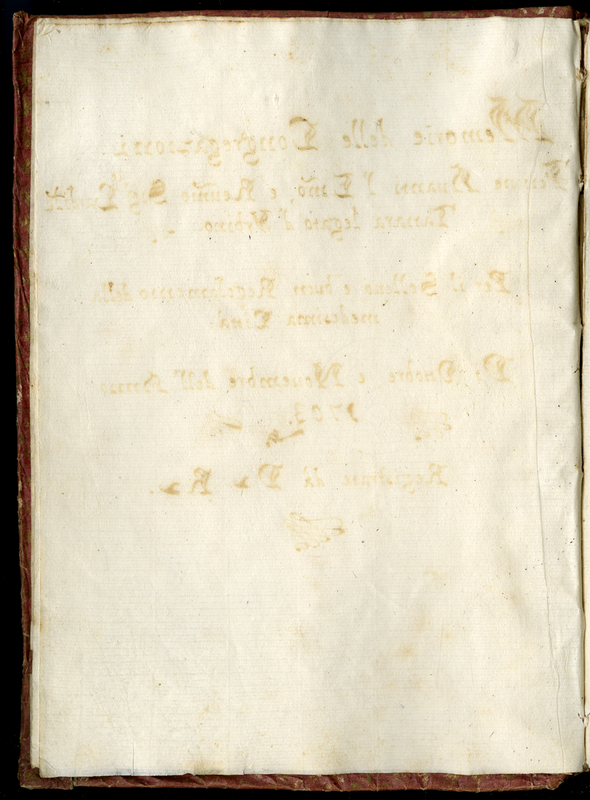 Memorie delle Congregazioni
Tenute Auanti l'Emo, e Reumo Sig.
Tanara legato d'Urbino
Per il Solleuo e buon Regolamento della
medesima Città
D: Ottobre e Nouembre dell'Anno
1703.
Registrate dà D R